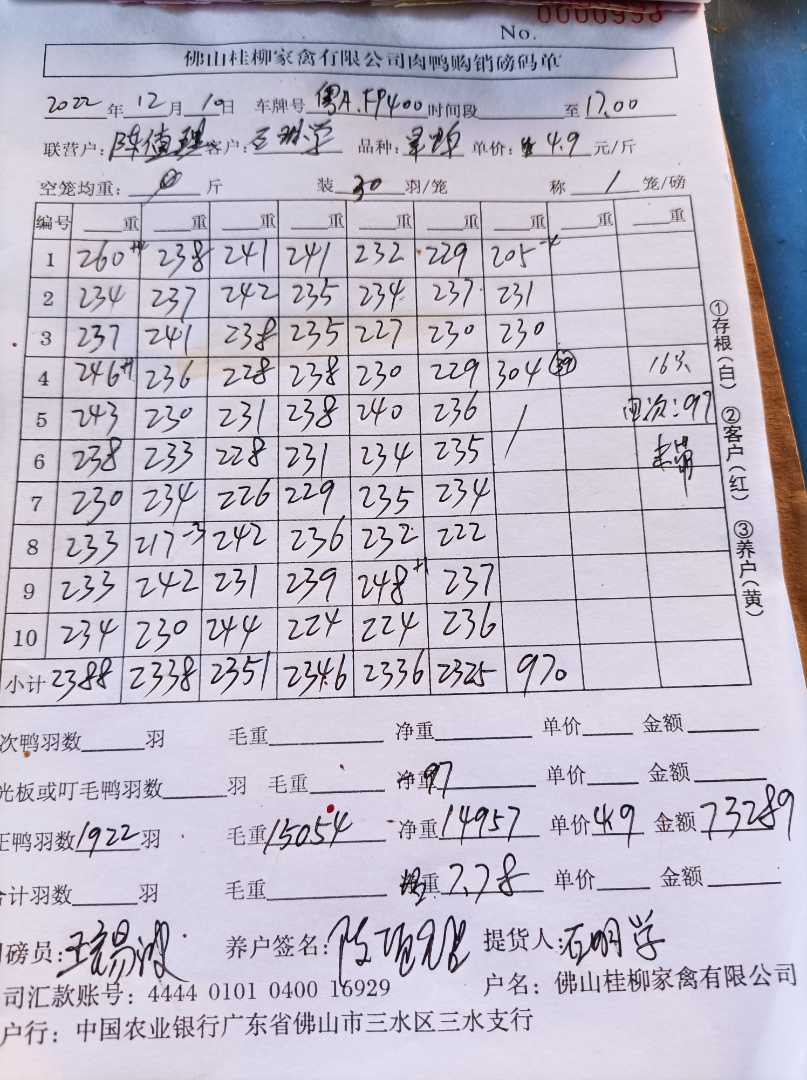 0000998
No.
佛山桂柳家禽有限公司肉鸭购销磅码单
2022年12月10日 车牌号粤A.FP400时间段 至17.00
联营户: 客户: 品种: 单价: 4.9元/斤
空笼均重: 0斤 装30羽/笼 称1笼/磅
编号 重 重 重 重 重 重 重 重
1 260 238 241 241 232 229 205
2 234 237 242 235 234 237 231
3 237 241 238 235 227 230 230
4 246 236 228 238 230 229 304 39 16只
5 243 230 231 238 240 236 / 次:97
6 238 233 228 231 234 235
7 230 234 226 229 235 234
8 233 217-3 242 236 232 222
9 233 242 231 239 248+1 237
10 234 230 244 224 224 236
小计 2388 2338 2351 2346 2336 2325 970
①存根(白) ②客户(红) ③养户(黄)
次鸭羽数 羽 毛重 净重 单价 金额
光板或叮毛鸭羽数 羽 毛重 净重97 单价 金额
正鸭羽数1922羽 毛重15054 净重14957 单价4.9 金额73289
合计羽数 羽 毛重 重7.78 单价 金额
司磅员: 养户签名: 提货人:石明学
司汇款账号: 4444 0101 0400 16929 户名: 佛山桂柳家禽有限公司
户行: 中国农业银行广东省佛山市三水区三水支行